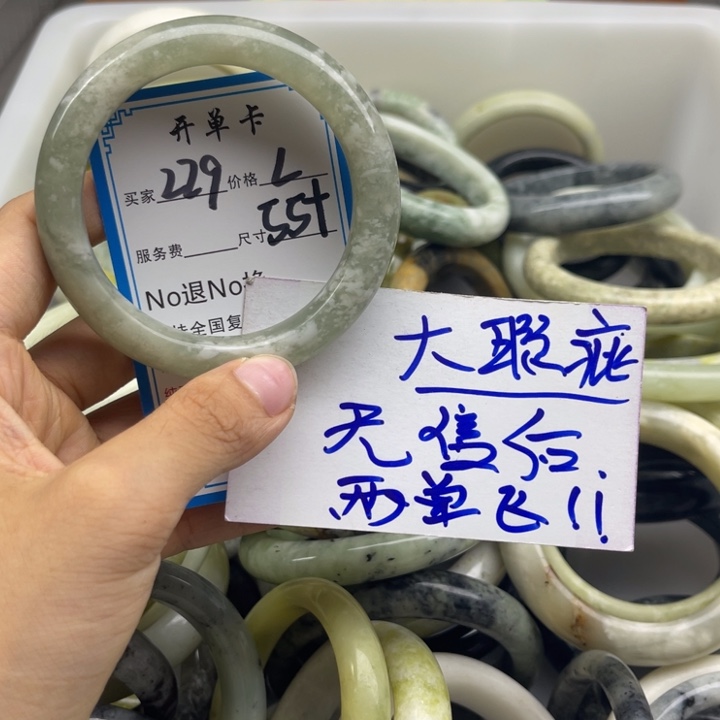 开单卡
买家229价格L
服务费 尺寸55+
No退No换
持全国复
大瑕疵
无售后
两单飞!!